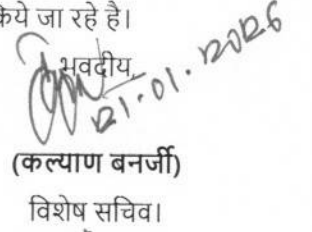 किये जा रहे है।
भवदीय,
21.01.2026
(कल्याण बनर्जी)
विशेष सचिव।